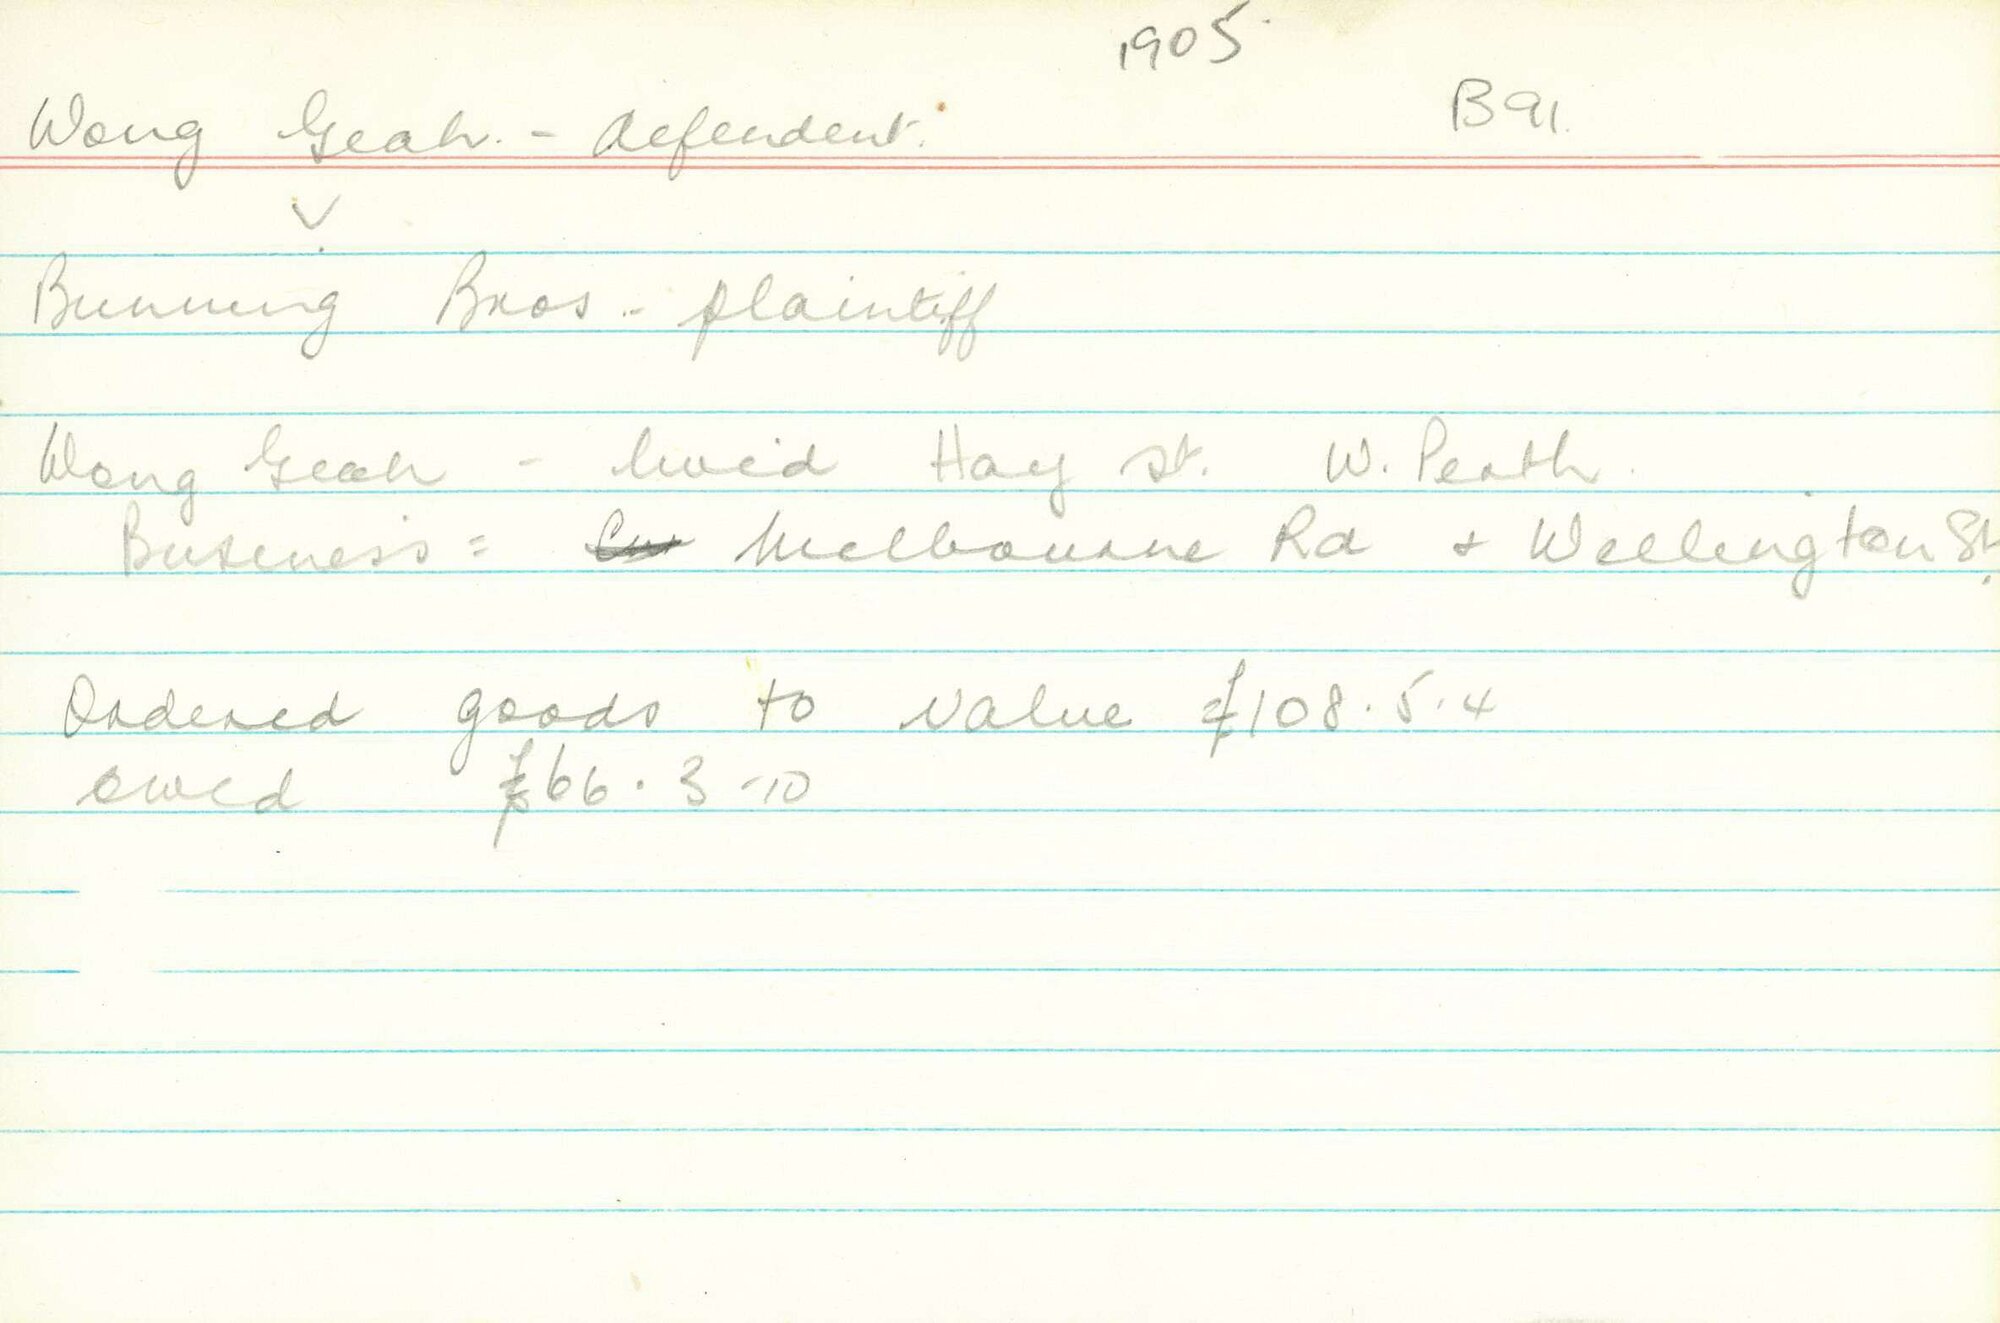 1905
Wong Geah. - defendent. B91.
V
Bunning Bros - plaintiff
Wong Geah - lived Hay St. W. Perth.
Business = Melbourne Rd + Wellington St.
Ordered goods to value £108.5.4
owed £66.3-10